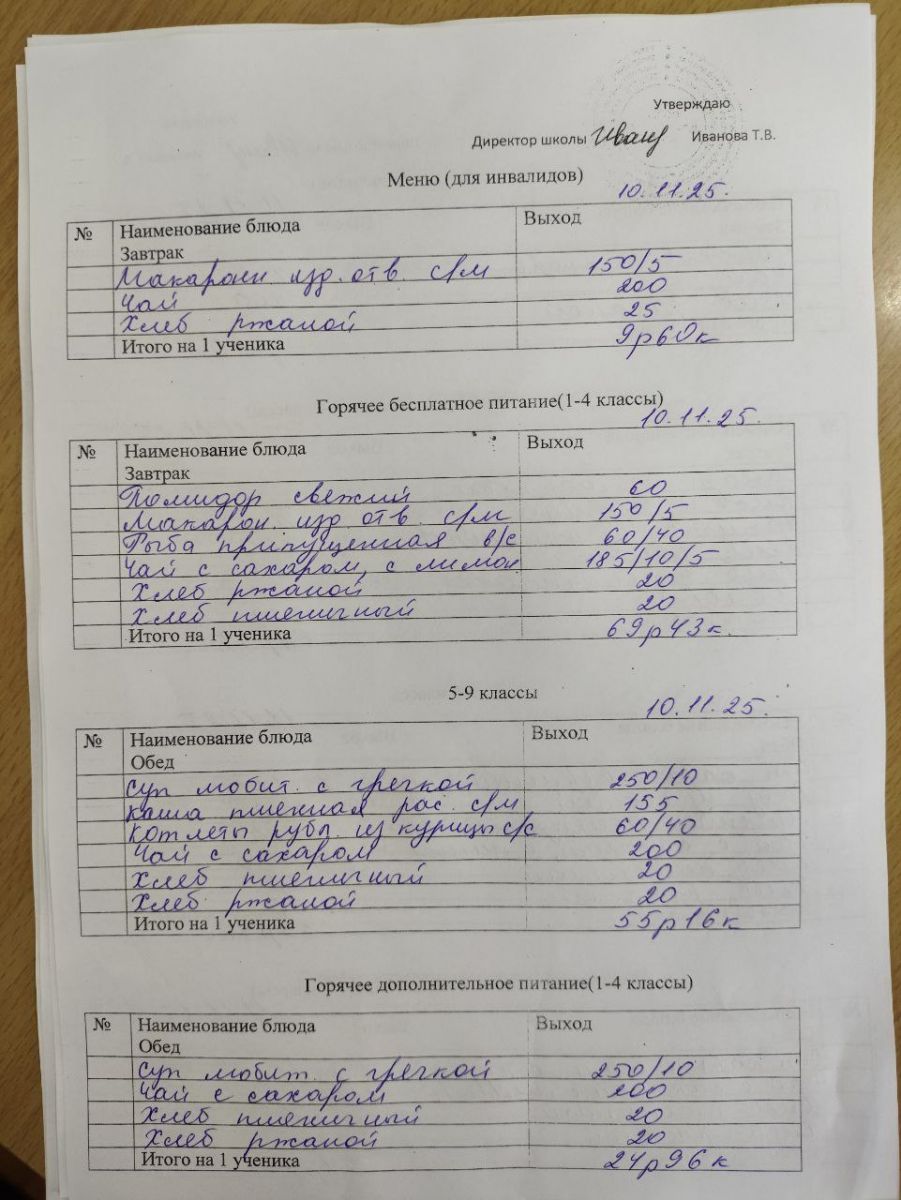 Утверждаю
Директор школы Иванова Т.В.
Меню (для инвалидов)
10.11.25.
№ Наименование блюда Выход
Завтрак
Макарон изд. отв. с/м 150/5
Чай 200
Хлеб ржаной 25
Итого на 1 ученика 9р60к
Горячее бесплатное питание(1-4 классы)
10.11.25.
№ Наименование блюда Выход
Завтрак
Помидор свежий 60
Макарон. изд. отв. с/м 150/5
Рыба припущенная в/с 60/40
Чай с сахаром, с лимон 185/10/5
Хлеб ржаной 20
Хлеб пшеничный 20
Итого на 1 ученика 69р43к.
5-9 классы
10.11.25.
№ Наименование блюда Выход
Обед
Суп любит. с гречкой 250/10
Каша пшенная рас. с/м 155
Котлеты рубл. из курицы с/с 60/40
Чай с сахаром 200
Хлеб пшеничный 20
Хлеб ржаной 20
Итого на 1 ученика 55р16к
Горячее дополнительное питание(1-4 классы)
№ Наименование блюда Выход
Обед
Суп любит. с гречкой 250/10
Чай с сахаром 200
Хлеб пшеничный 20
Хлеб ржаной 20
Итого на 1 ученика 24р96к